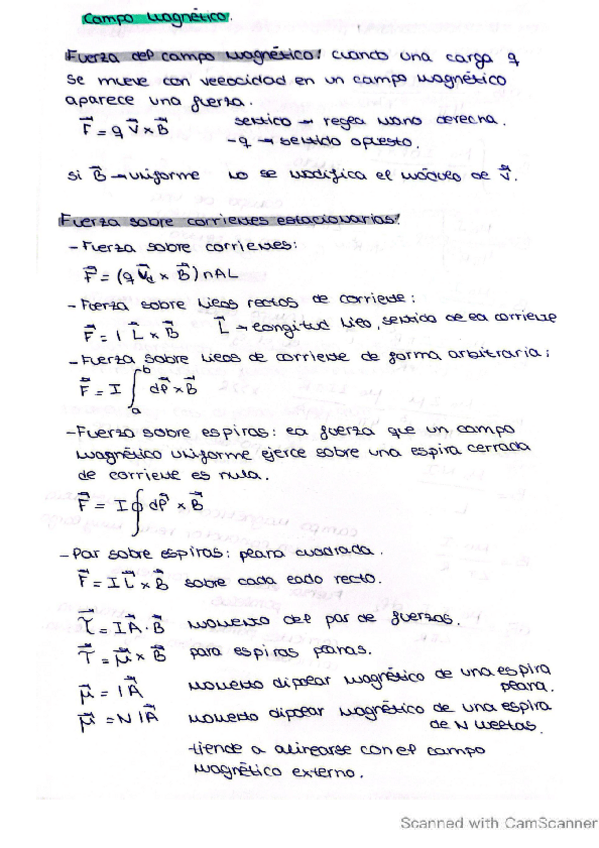 Campo magnético.
Fuerza del campo magnético: cuando una carga q
se mueve con velocidad en un campo magnético
aparece una fuerza.
F⃗ = q V⃗ x B⃗ sentido → regla mano derecha.
-q → sentido opuesto.
si B⃗ → uniforme no se modifica el módulo de V⃗.
Fuerza sobre corrientes estacionarias:
- Fuerza sobre corrientes:
F⃗ = (q V⃗d x B⃗) nAL
- Fuerza sobre hilos rectos de corriente:
F⃗ = I L⃗ x B⃗ L⃗ → longitud hilo, sentido de la corriente
- Fuerza sobre hilos de corriente de forma arbitraria:
F⃗ = I ∫ₐᵇ dl⃗ x B⃗
- Fuerza sobre espiras: la fuerza que un campo
magnético uniforme ejerce sobre una espira cerrada
de corriente es nula.
F⃗ = I ∮ dl⃗ x B⃗
- Par sobre espiras: plana cuadrada.
F⃗ = I L⃗ x B⃗ sobre cada lado recto.
τ⃗ = I A⃗ · B⃗ momento del par de fuerzas.
τ⃗ = μ⃗ x B⃗ para espiras planas.
μ⃗ = I A⃗ momento dipolar magnético de una espira
plana.
μ⃗ = N I A⃗ momento dipolar magnético de una espira
de N vueltas.
tiende a alinearse con el campo
magnético externo.
Scanned with CamScanner